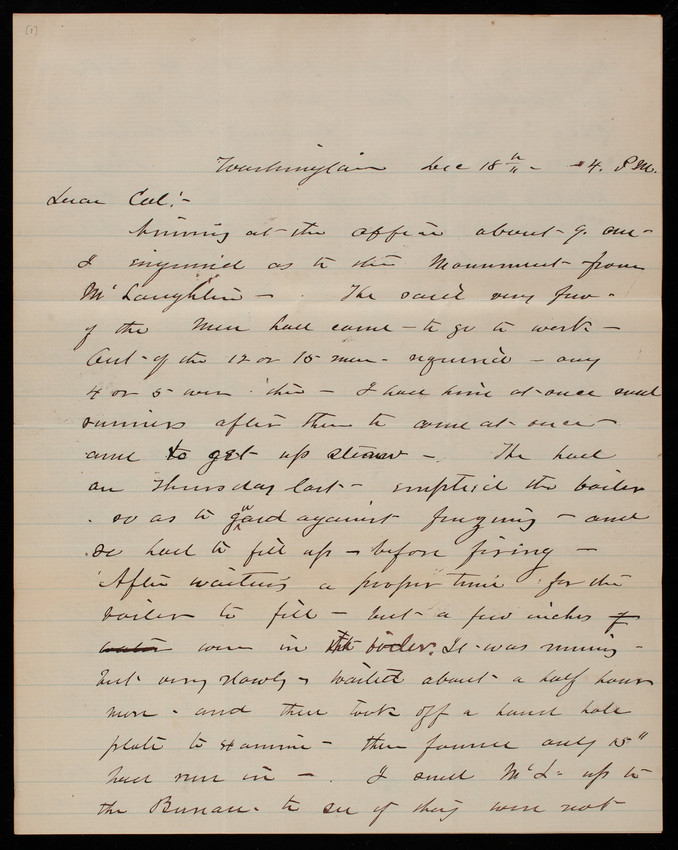 [1]
Washington Dec 18th - 4. P.M.
Dear Col:-
Arriving at the office about 9. am -
I inquired as to the Monument from
McLaughlin - . He said very few -
of the men had come - to go to work -
Out of the 12 or 15 men - required - only
4 or 5 were there - I had him at once send
runners after them to come at once -
and to get up steam - . He had
on Thursday last - emptied the boiler
so as to guard against freezing - and
so had to fill up - before firing -
After waiting a proper time for the
boiler to fill - but a few inches of
water were in the boiler. It was running -
but very slowly - waited about a half hour
more - and then took off a hand hole
plate to examine - then found only 15"
had run in - . I send McL- up to
the Bureau - to see if they were not